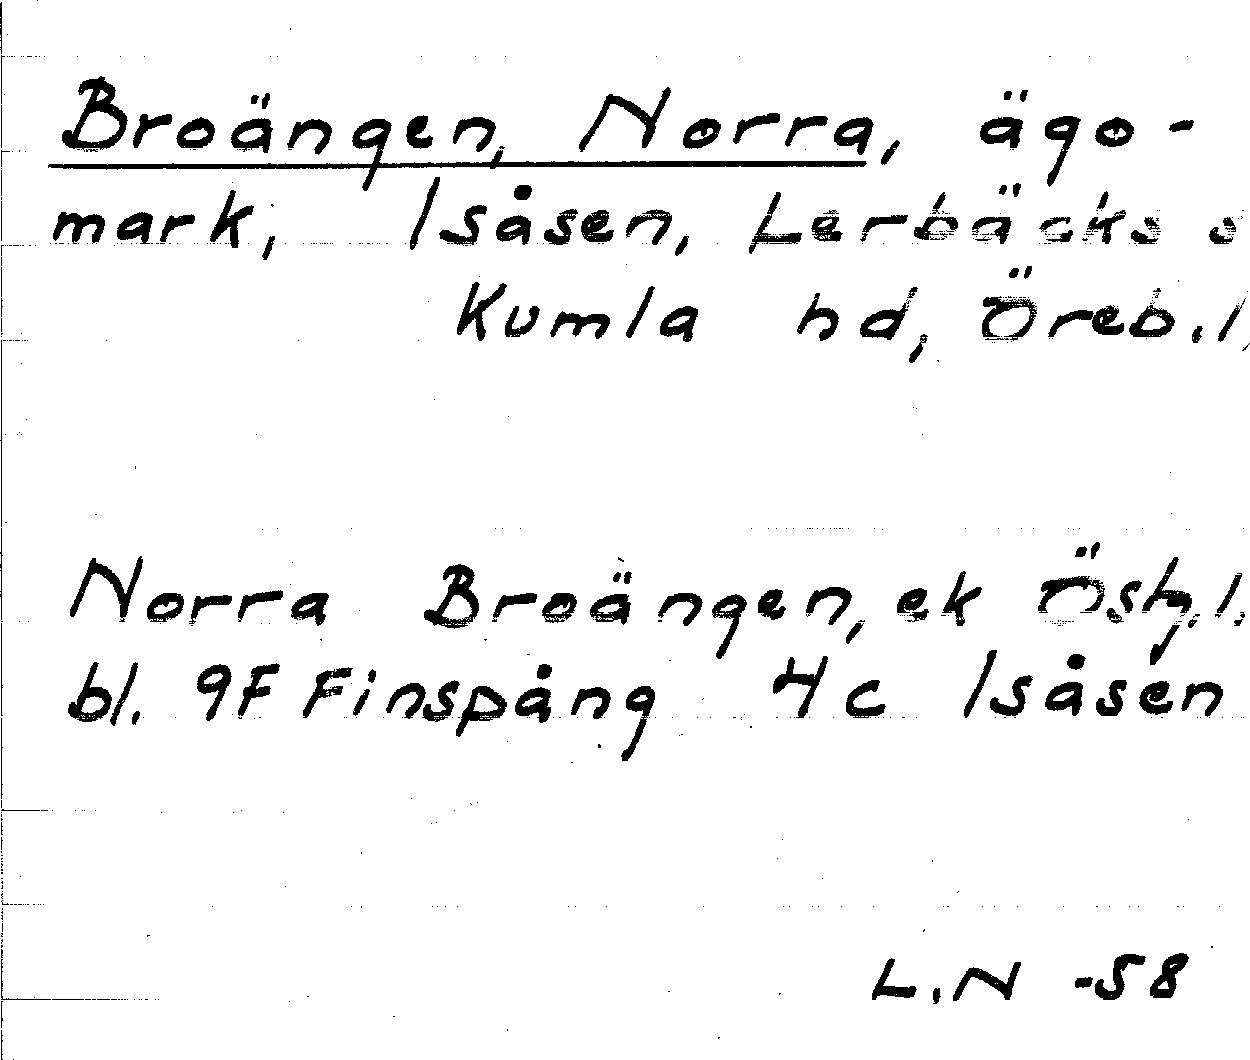 Broängen, Norra, ägo-
mark, Isåsen, Lerbäcks s
Kumla hd, Öreb. l,
Norra Broängen, ek Östg. l.
bl. 9F Finspång 4c Isåsen
L.N -58